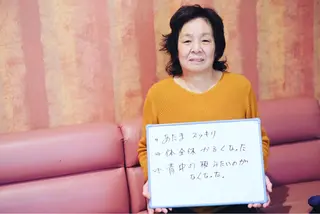 ・あたま スッキリ
・体全体 かるくなった
・背中の板みたいのが
なくなった。